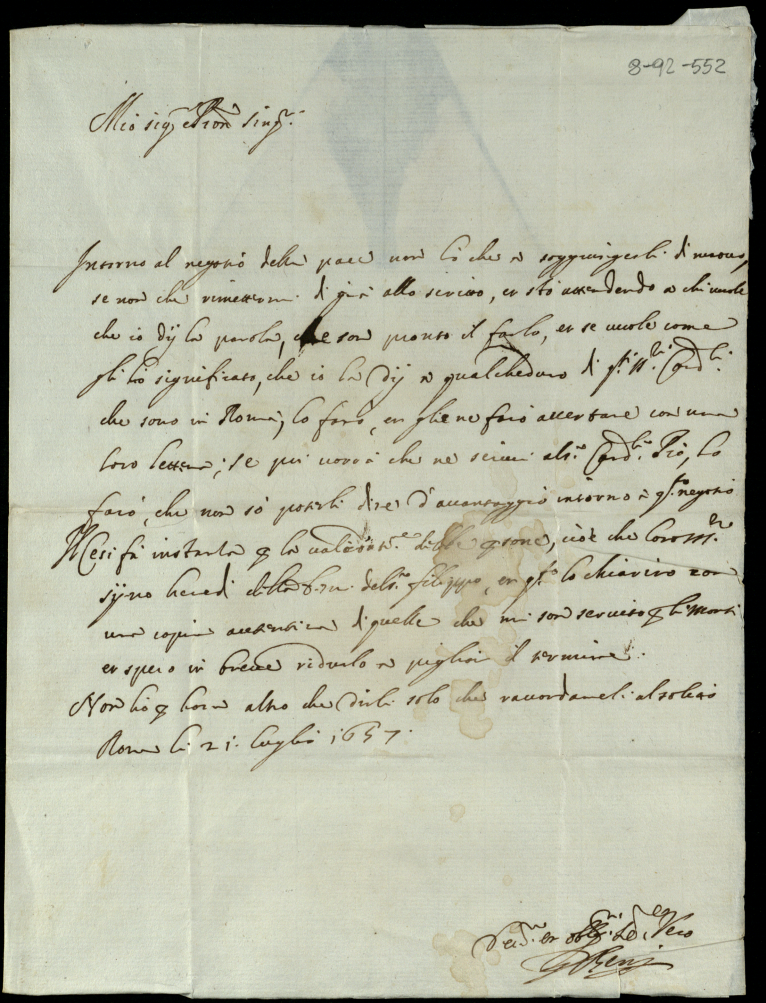 8-92-552
Mio sig.re e Pron sing.r
Intorno al negotio della pace non hò che à soggiungerli di nuovo,
se non che rimettermi di già allo scritto, et stò attendendo à chi vuole
che io dij la parola, che son pronto il farlo, et se vuole come
gli hò significato, che io la dij à qualcheduno di q.ti SS.ri Card.li
che sono in Roma, lo farò, et gliene farò accertare con una
loro lettera; se poi vorrà che ne scrivi al s.r Card.l Pio, lo
farò, che non sò poterli dire d'avantaggio intorno à q.to negotio
Mesi fà instarla p la delle psone, cioè che loro SS.ri
sijno heredi della b. m. del s.r Filippo, et q.to lo chiarirò con
una copia autentica di quelle che mi son servito p li Monti
et spero in breve ridurlo à pigliar il termine.
Non hò p hora altro che dirli solo che raccordameli al solito
Roma li 21. luglio 1657.
et